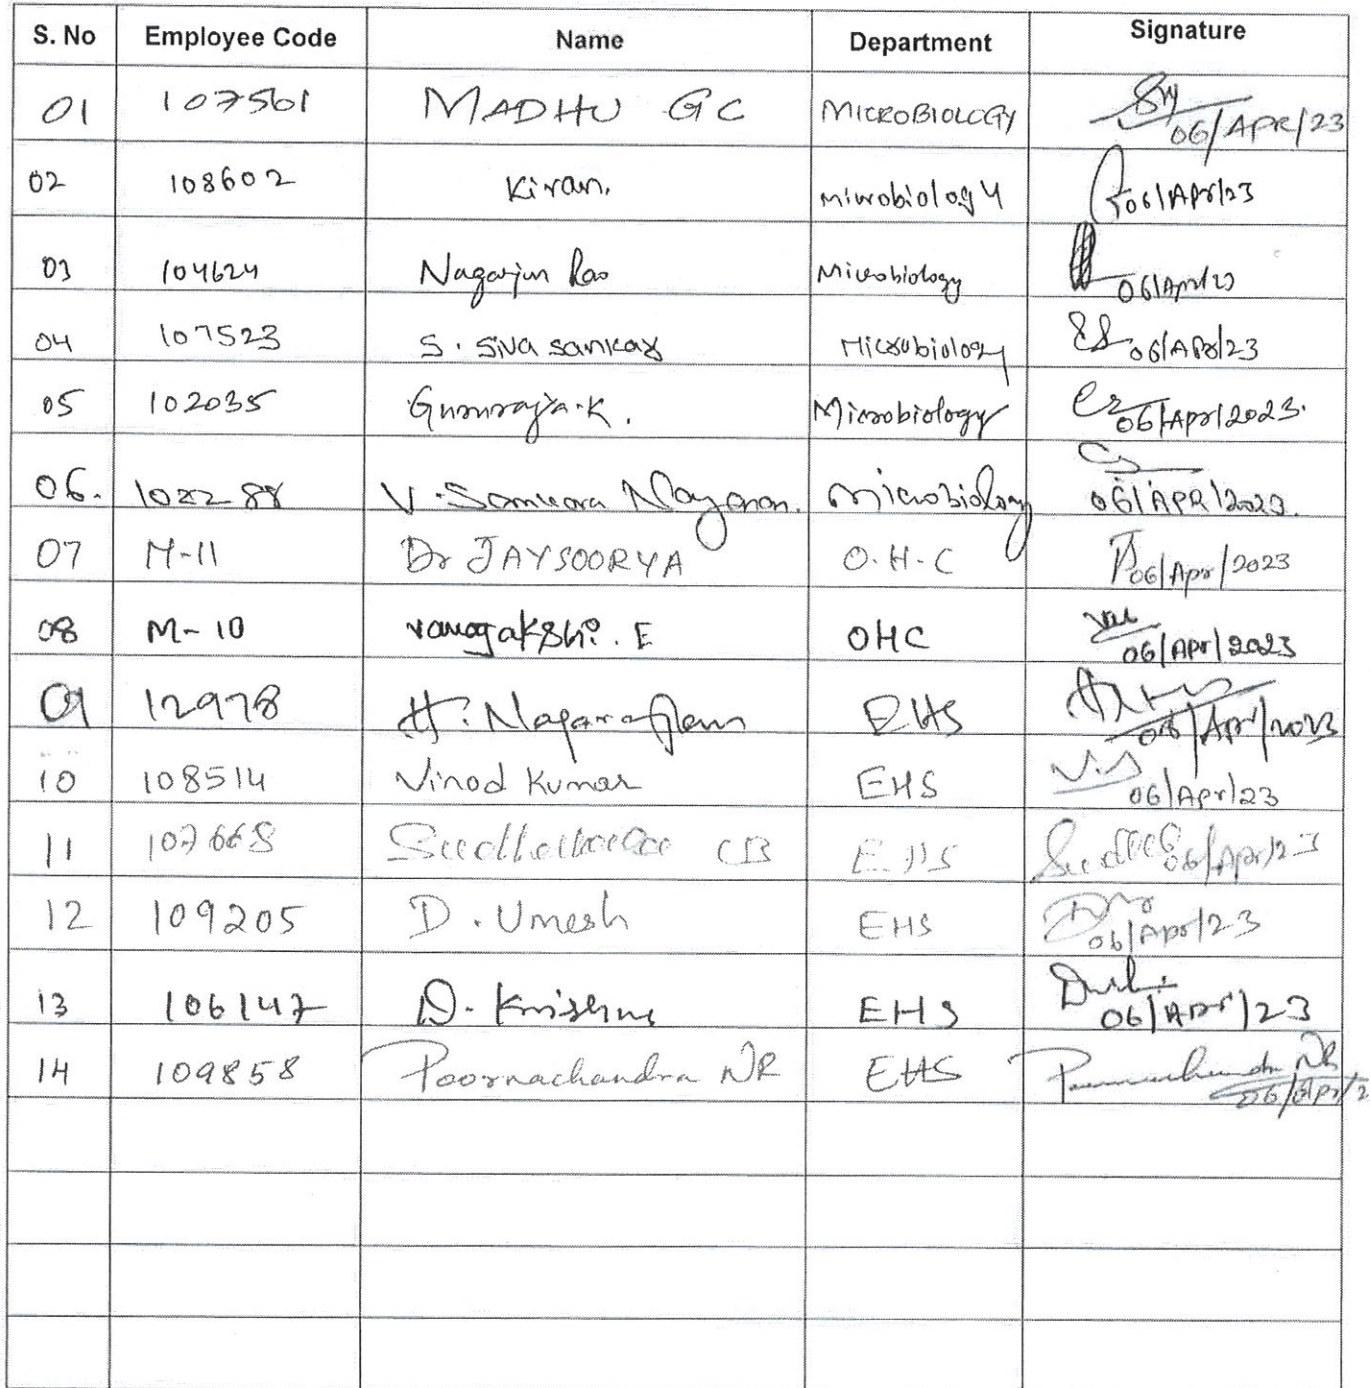 S. No Employee Code Name Department Signature
01 107561 MADHU GC MICROBIOLOGY 06/APR/23
02 108602 Kiran. microbiology 06/Apr/23
03 104624 Nagarjun Rao Microbiology 06/Apr/23
04 107523 S. Siva sankar Microbiology 06/Apr/23
05 102035 Gururaja.K. Microbiology 06/Apr/2023.
06. V. Sankara Narayanan. microbiology 06/APR/2023.
07 M-11 Dr JAYSOORYA O.H.C 06/Apr/2023
08 M-10 E OHC 06/Apr/2023
09 12978 H. EHS 06/Apr/2023
10 108514 Vinod Kumar EHS 06/Apr/23
11 107668 CB EHS 06/Apr/23
12 109205 D. Umesh EHS 06/Apr/23
13 106147 D. Krishna EHS 06/Apr/23
14 109858 Poornachandra NR EHS 06/Apr/2